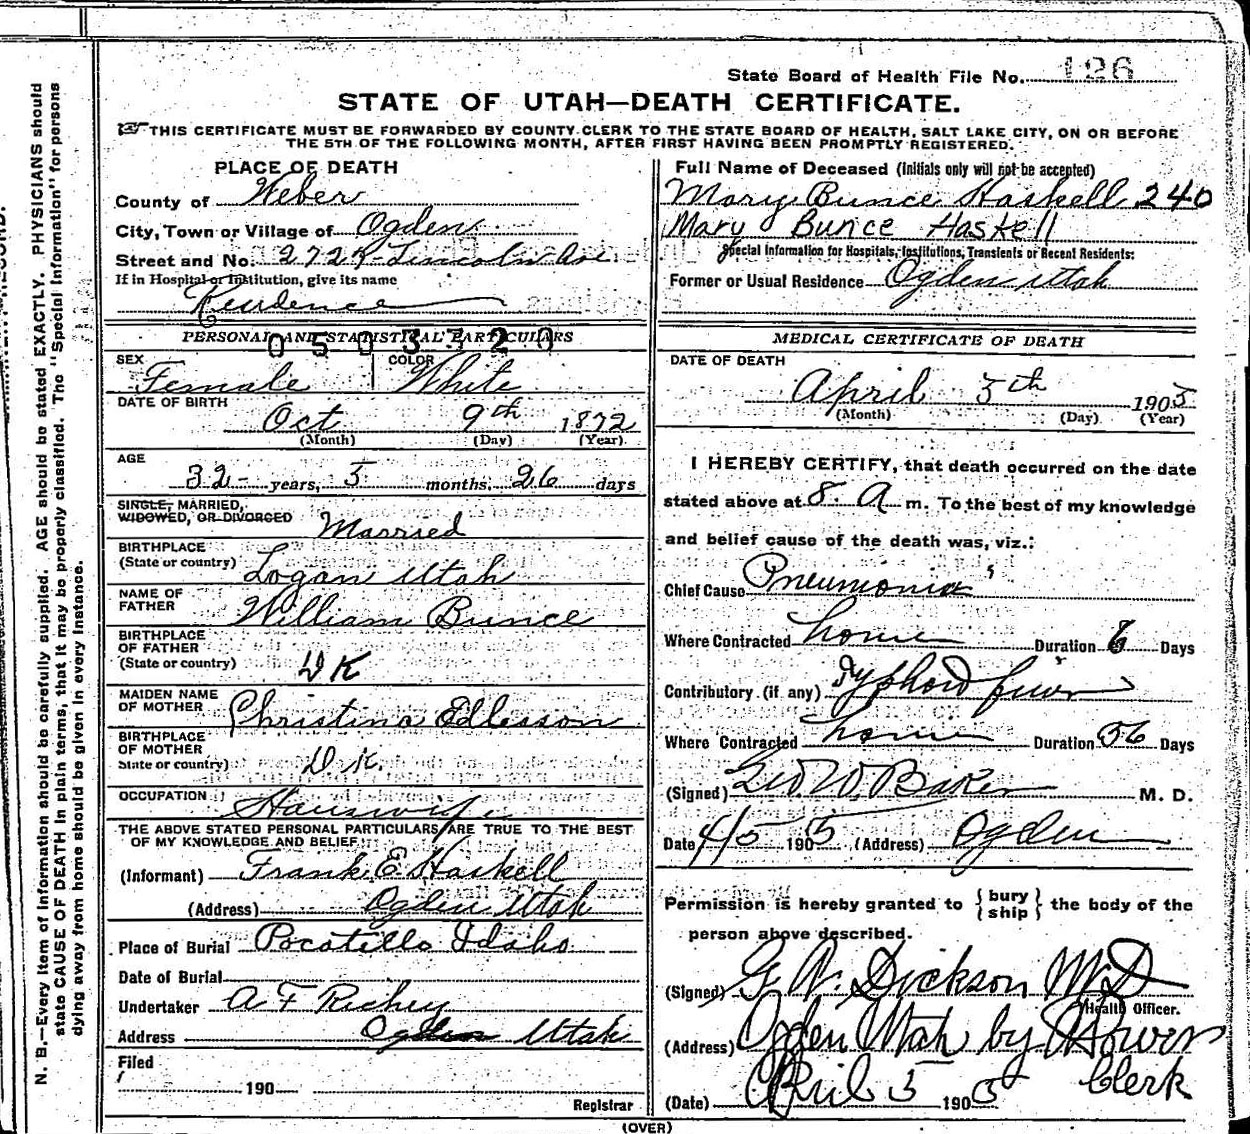 State Board of Health File No. 126
STATE OF UTAH—DEATH CERTIFICATE.
THIS CERTIFICATE MUST BE FORWARDED BY COUNTY CLERK TO THE STATE BOARD OF HEALTH, SALT LAKE CITY, ON OR BEFORE
THE 5TH OF THE FOLLOWING MONTH, AFTER FIRST HAVING BEEN PROMPTLY REGISTERED.
N. B.—Every item of information should be carefully supplied. AGE should be stated EXACTLY. PHYSICIANS should
state CAUSE OF DEATH in plain terms, that it may be properly classified. The "Special Information" for persons
dying away from home should be given in every instance.
PLACE OF DEATH
County of Weber
City, Town or Village of Ogden
Street and No. Lincoln Ave
If in Hospital or Institution, give its name
Residence
PERSONAL AND STATISTICAL PARTICULARS
0503320
SEX Female
COLOR White
DATE OF BIRTH
Oct 9th 1872
(Month) (Day) (Year)
AGE
32 years, 5 months, 26 days
SINGLE, MARRIED,
WIDOWED, OR DIVORCED Married
BIRTHPLACE
(State or country) Logan Utah
NAME OF
FATHER William Bunce
BIRTHPLACE
OF FATHER
(State or country) DK
MAIDEN NAME
OF MOTHER Christina
BIRTHPLACE
OF MOTHER
State or country) D.K.
OCCUPATION Hauswife
THE ABOVE STATED PERSONAL PARTICULARS ARE TRUE TO THE BEST
OF MY KNOWLEDGE AND BELIEF
(Informant) Frank E Haskell
(Address) Ogden Utah
Place of Burial Pocatello Idaho
Date of Burial
Undertaker A F Richey
Address Ogden Utah
Filed
190
Registrar
Full Name of Deceased (Initials only will not be accepted)
Mary Bunce Haskell 240
Mary Bunce Haskell
Special Information for Hospitals, Institutions, Transients or Recent Residents:
Former or Usual Residence Ogden Utah
MEDICAL CERTIFICATE OF DEATH
DATE OF DEATH
April 5th 1905
(Month) (Day) (Year)
I HEREBY CERTIFY, that death occurred on the date
stated above at 8. A m. To the best of my knowledge
and belief cause of the death was, viz.:
Chief Cause Pneumonia
Where Contracted home Duration 6 Days
Contributory (if any) Typhoid fever
Where Contracted home Duration Days
(Signed) Geo. W. Baker M. D.
Date 4/5 1905 (Address) Ogden
Permission is hereby granted to {bury
ship} the body of the
person above described.
(Signed) G. W. Dickson MD
Health Officer.
(Address) Ogden Utah by
Clerk
(Date) April 5 1905
(OVER)